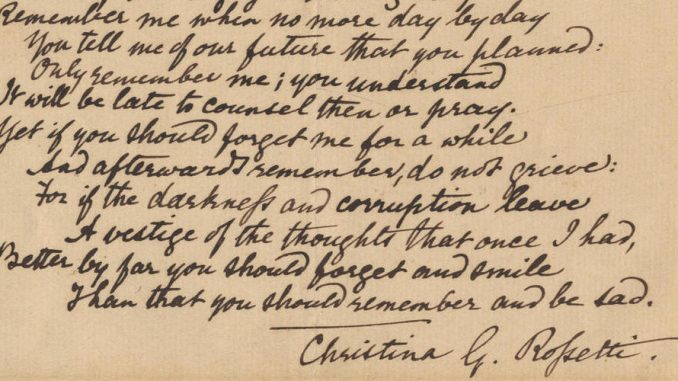 Remember me when no more day by day
You tell me of our future that you planned:
Only remember me; you understand
It will be late to counsel then or pray.
Yet if you should forget me for a while
And afterwards remember, do not grieve:
For if the darkness and corruption leave
A vestige of the thoughts that once I had,
Better by far you should forget and smile
Than that you should remember and be sad.
Christina G. Rossetti.